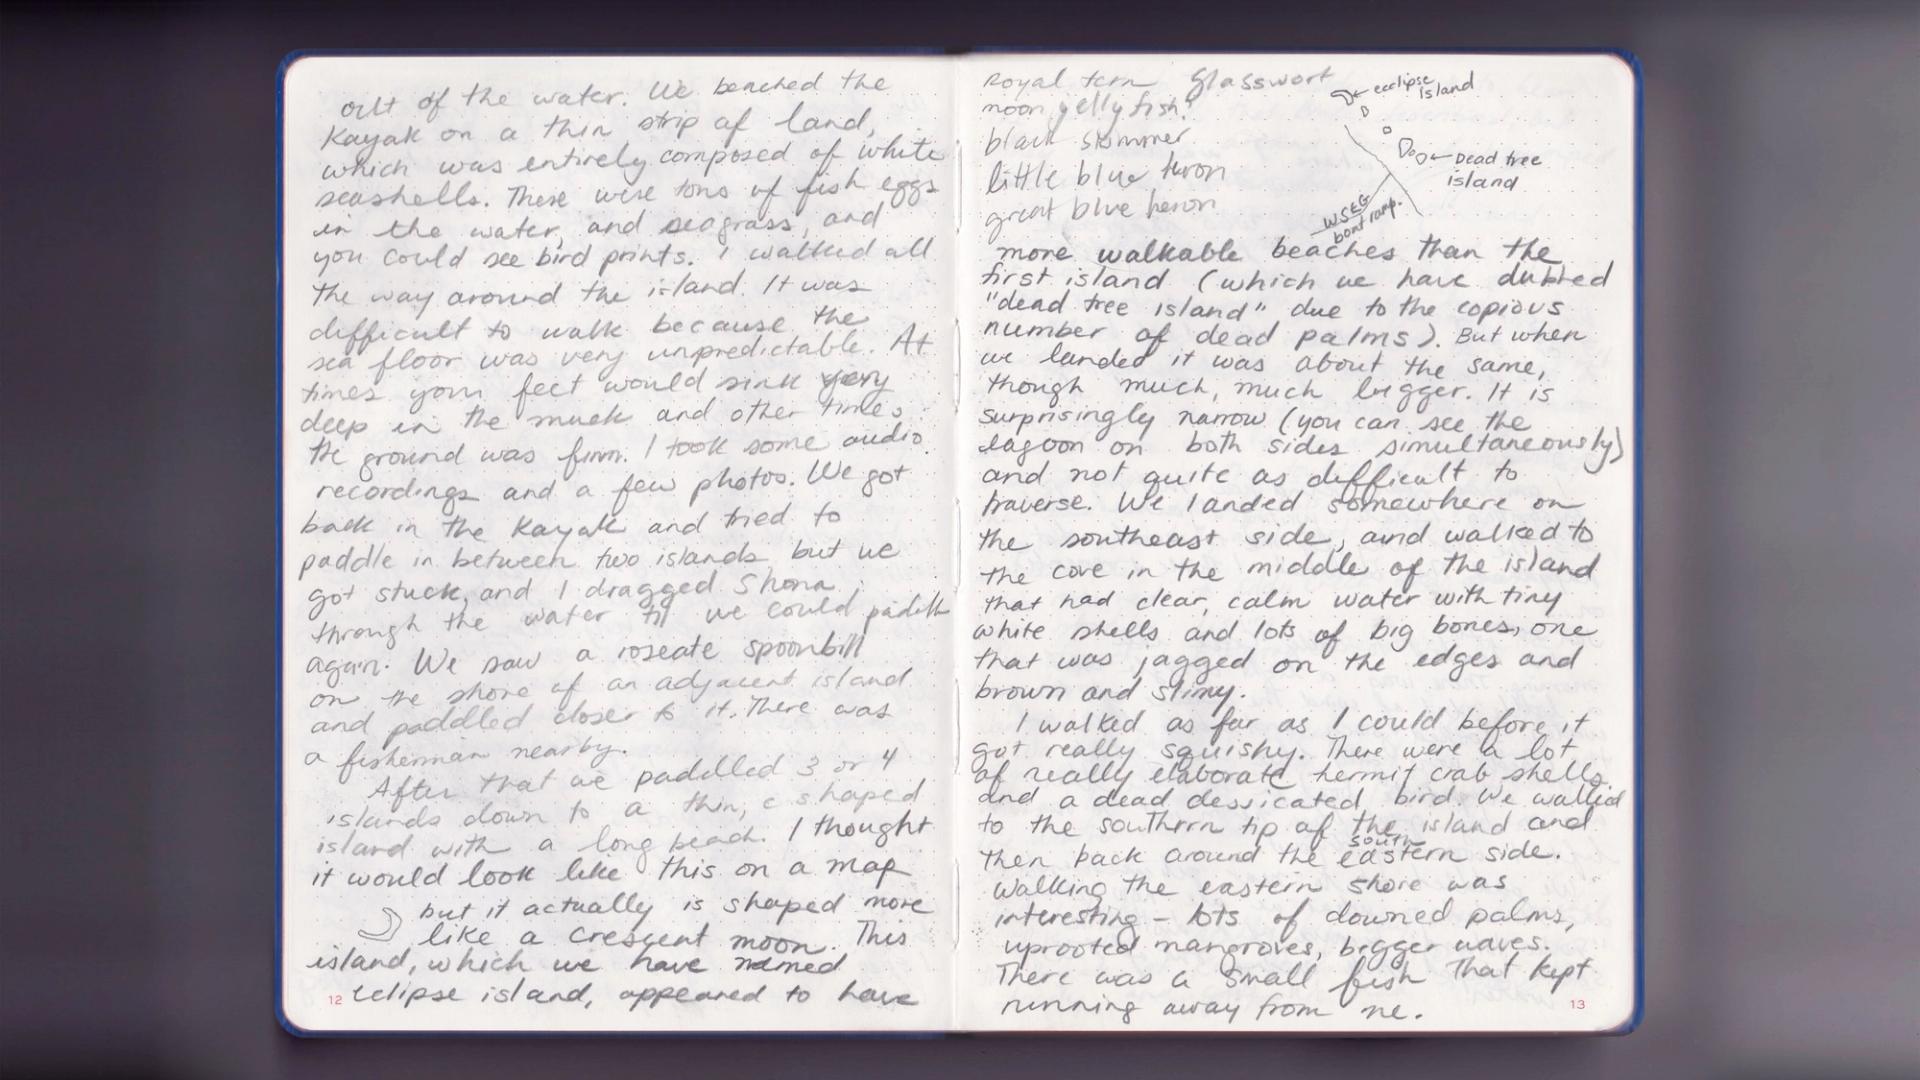 out of the water. We beached the
Kayak on a thin strip of land,
which was entirely composed of white
seashells. There were tons of fish eggs
in the water, and seagrass, and
you could see bird prints. I walked all
the way around the island. It was
difficult to walk because the
sea floor was very unpredictable. At
times your feet would sink very
deep in the muck and other times
the ground was firm. I took some audio
recordings and a few photos. We got
back in the kayak and tried to
paddle in between two islands but we
got stuck, and I dragged Shona
through the water til we could paddle
again. We saw a roseate spoonbill
on the shore of an adjacent island
and paddled closer to it. There was
a fisherman nearby.
After that we paddled 3 or 4
islands down to a thin, c shaped
island with a long beach. I thought
it would look like this on a map
but it actually is shaped more
like a crescent moon. This
island, which we have named
eclipse island, appeared to have
12
Royal tern Glasswort
moon jellyfish?
black skimmer
little blue heron
great blue heron
ecclipse
island
Dead tree
island
WSEG
boat ramp.
more walkable beaches than the
first island (which we have dubbed
"dead tree island" due to the copious
number of dead palms). But when
we landed it was about the same,
though much, much bigger. It is
surprisingly narrow (you can see the
lagoon on both sides simultaneously)
and not quite as difficult to
traverse. We landed somewhere on
the southeast side, and walked to
the cove in the middle of the island
that had clear, calm water with tiny
white shells and lots of big bones, one
that was jagged on the edges and
brown and slimy.
I walked as far as I could before it
got really squishy. There were a lot
of really elaborate hermit crab shells
and a dead dessicated bird. We walked
to the southern tip of the island and
then back around the south eastern side.
Walking the eastern shore was
interesting - lots of downed palms,
uprooted mangroves, bigger waves.
There was a small fish that kept
running away from me.
13